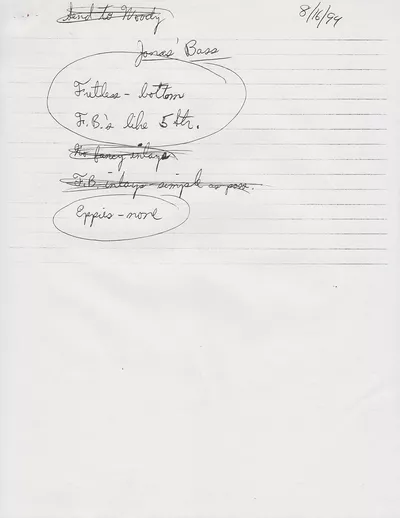 Send to Woody
8/16/94
Jonas' Bass
Fretless - bottom
F.B.'s like 5 str.
No fancy inlays
F.B. inlays - simple as poss.
Eppies - none